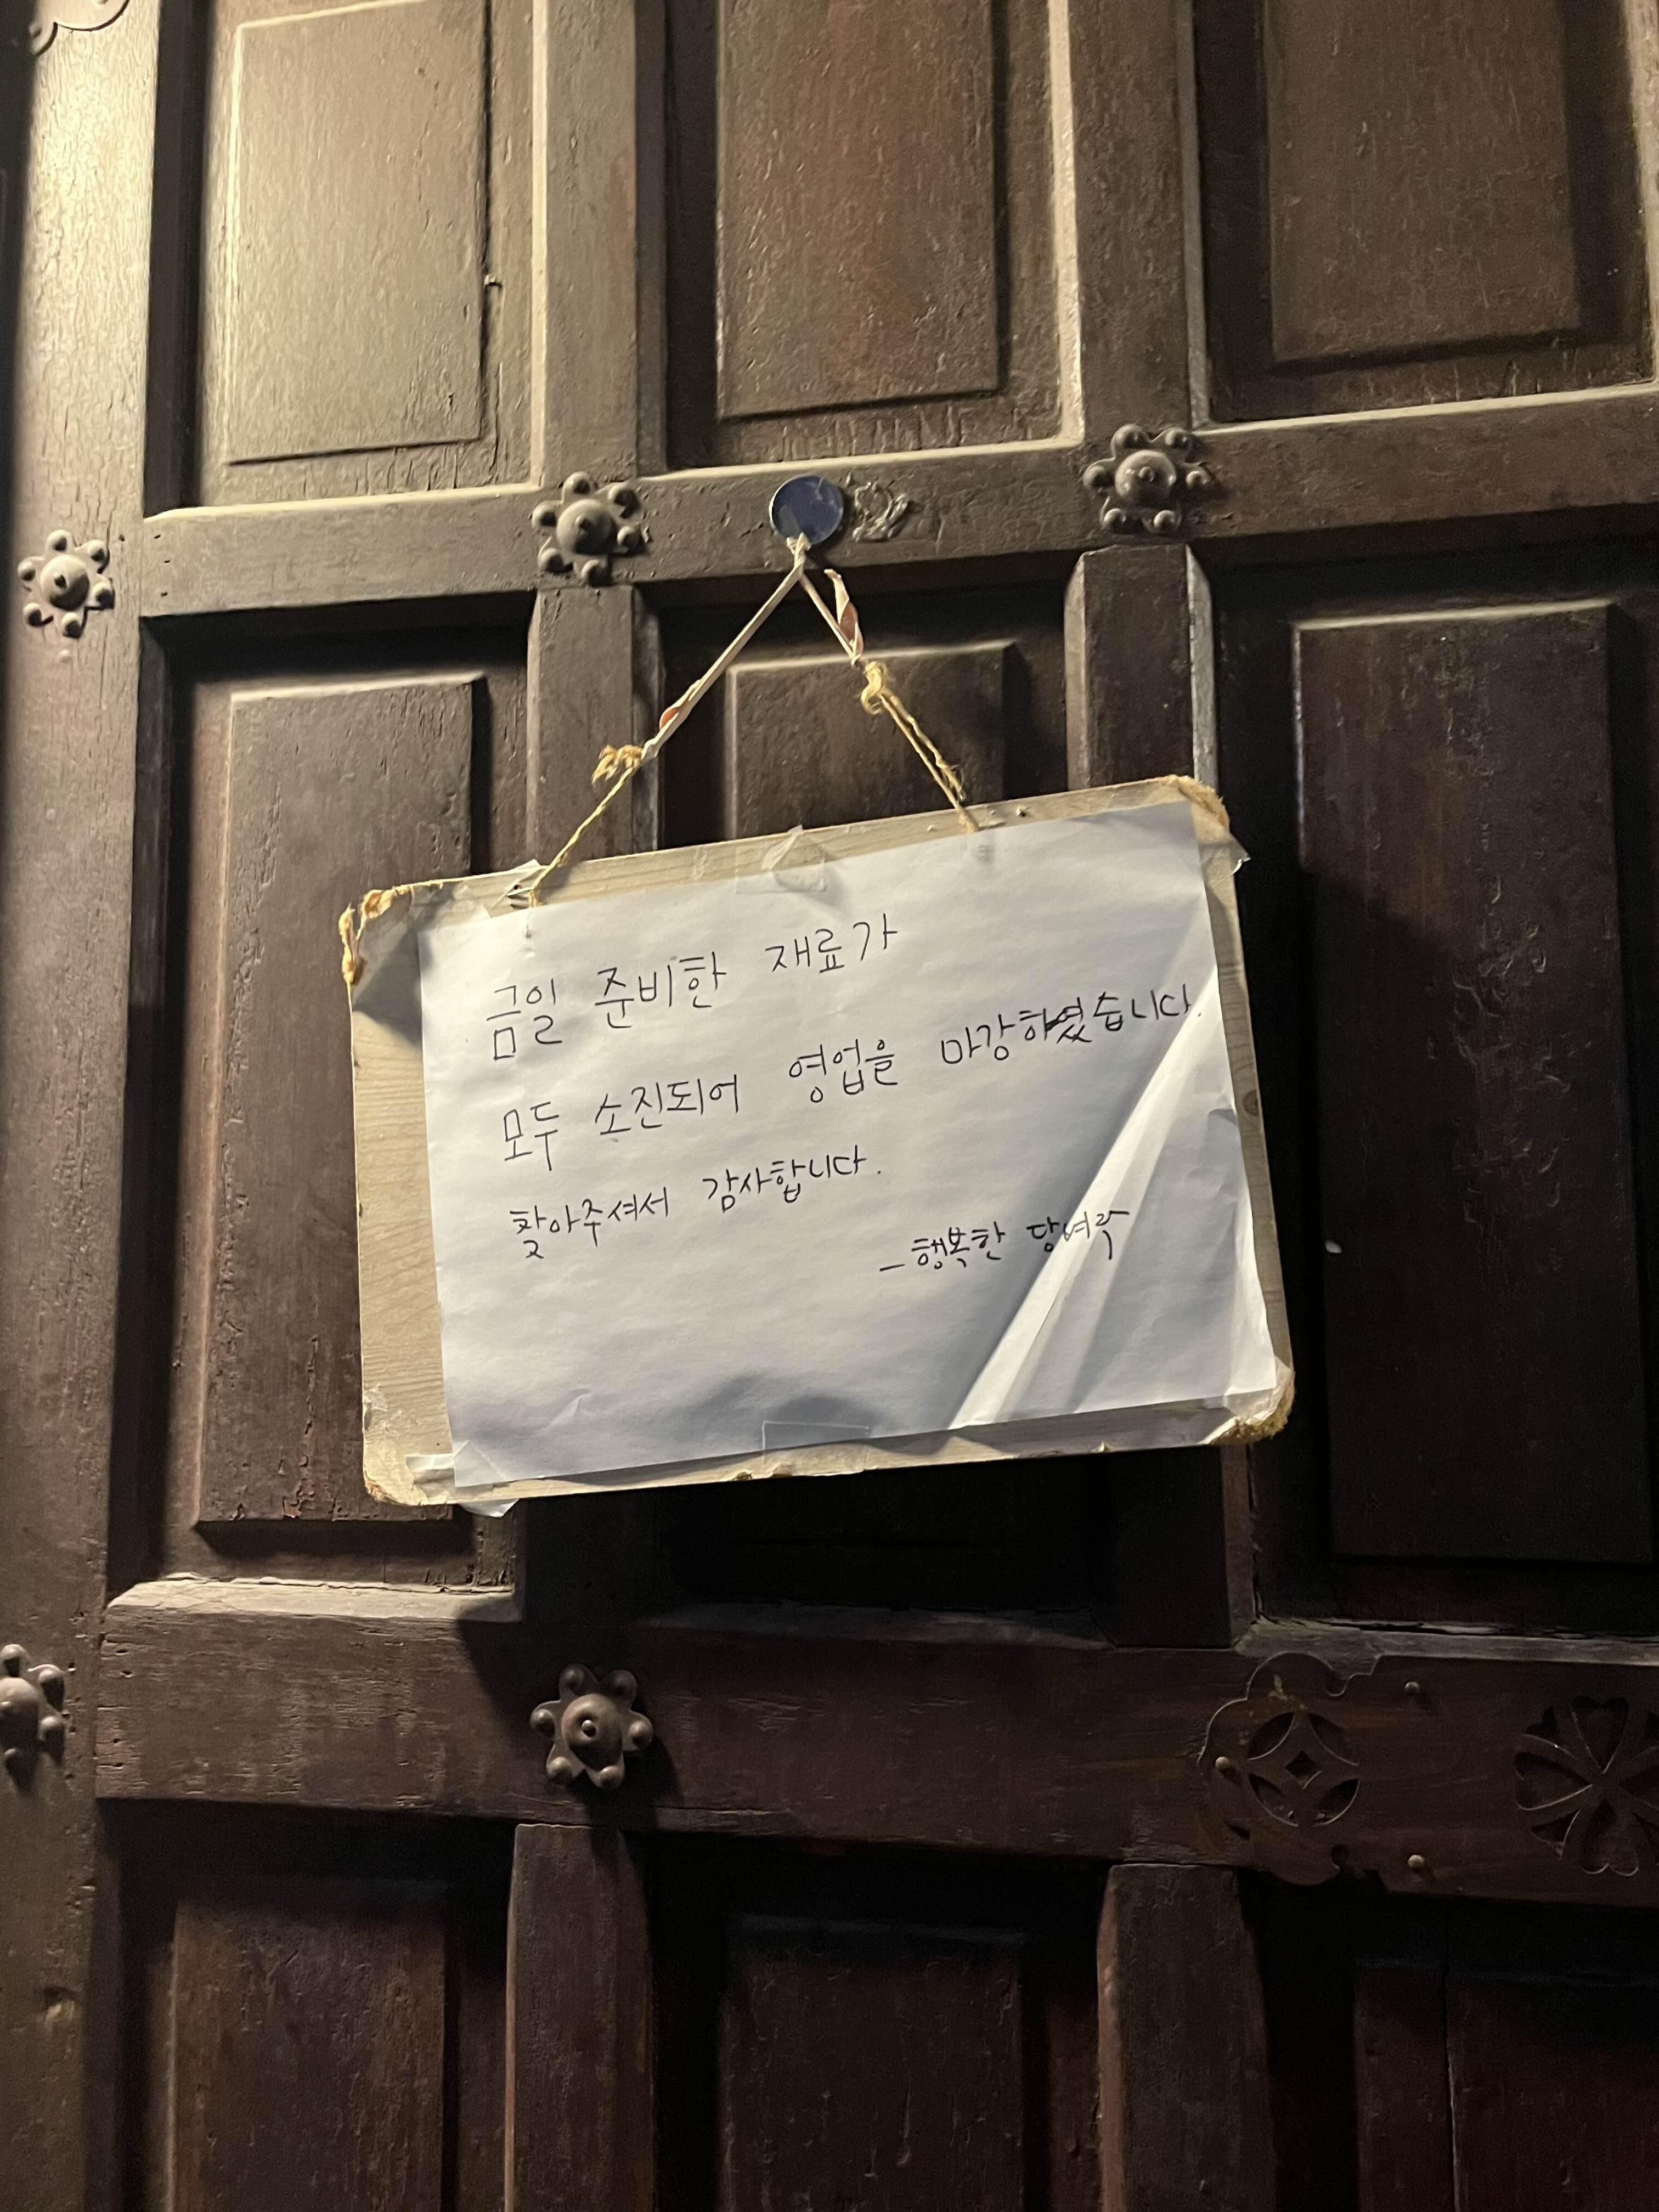 금일 준비한 재료가
모두 소진되어 영업을 마감하였습니다.
찾아주셔서 감사합니다.
- 행복한 당녀락